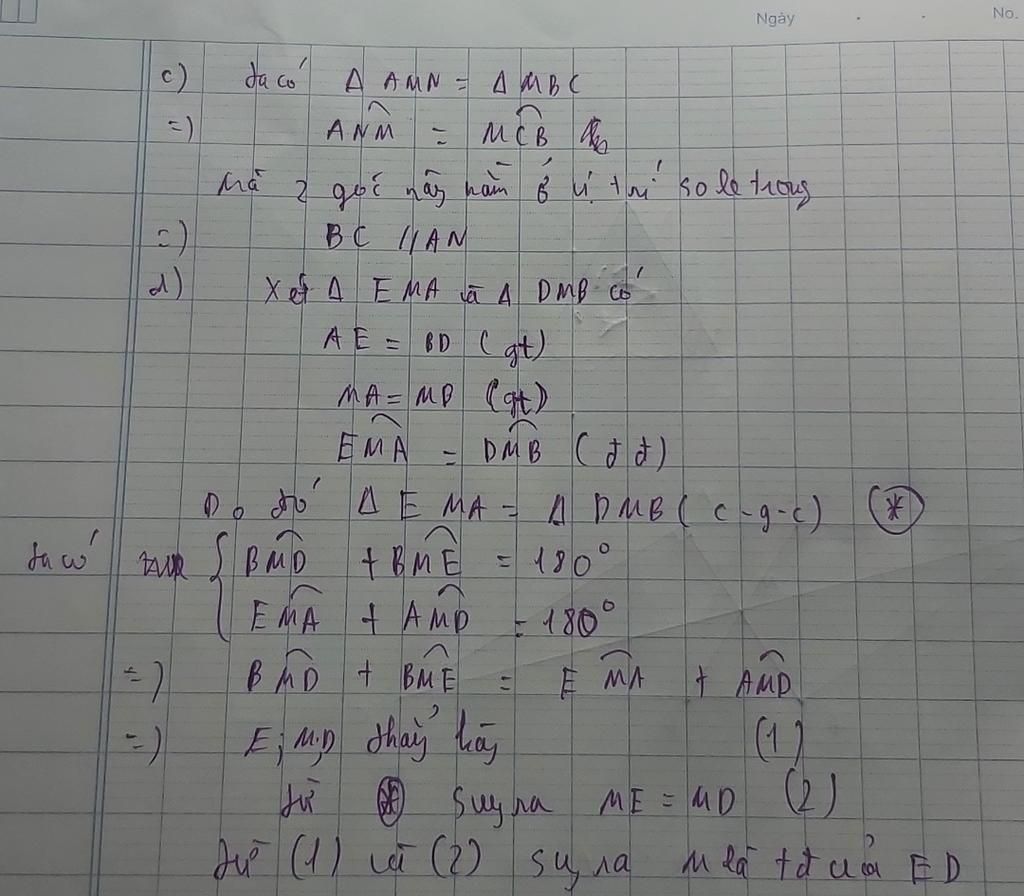 Ngày . . No.
c) ta có Δ AMN = Δ MBC
=) ANM = MCB
Mà 2 góc này nằm ở vị trí so le trong
=) BC // AN
d) Xét Δ EMA và Δ DMB có
AE = BD (gt)
MA = MB (gt)
EMA = DMB (đ đ)
Do đó Δ EMA = Δ DMB ( c - g - c) (*)
ta có { BMD + BME = 180°
EMA + AMD = 180°
=) BMD + BME = EMA + AMD
=) E; M; D thẳng hàng (1)
từ (*) suy ra ME = MD (2)
từ (1) và (2) suy ra M là tđ của ED